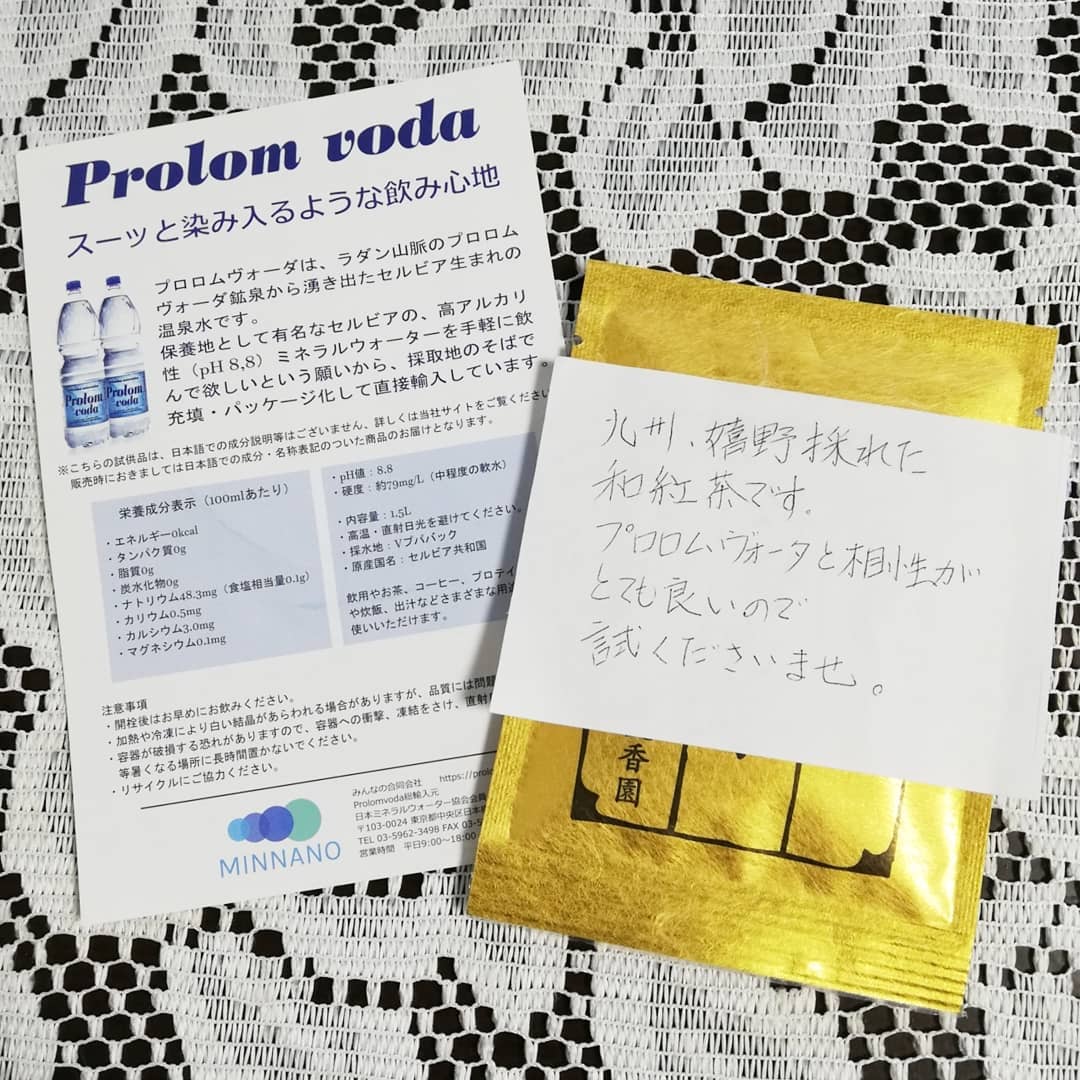 Prolom voda
スーッと染み入るような飲み心地
プロロムヴォーダは、ラダン山脈のプロロム
ヴォーダ鉱泉から湧き出たセルビア生まれの
温泉水です。
保養地として有名なセルビアの、高アルカリ
性（pH 8,8）ミネラルウォーターを手軽に飲
んで欲しいという願いから、採取地のそばで
充填・パッケージ化して直接輸入しています。
Prolom voda
Prolom voda
※こちらの試供品は、日本語での成分説明等はございません、詳しくは当社サイトをご覧ください
販売時におきましては日本語での成分・名称表記のついた商品のお届けとなります。
栄養成分表示（100mlあたり）
・エネルギー0kcal
・タンパク質0g
・脂質0g
・炭水化物0g
・ナトリウム48.3mg（食塩相当量0.1g）
・カリウム0.5mg
・カルシウム3.0mg
・マグネシウム0.1mg
・pH値：8.8
・硬度：約79mg/L（中程度の軟水）
・内容量：1.5L
・高温・直射日光を避けてください。
・採水地：Vブババック
・原産国名：セルビア共和国
飲用やお茶、コーヒー、プロテイ
や炊飯、出汁などさまざまな用途
使いいただけます。
注意事項
・開栓後はお早めにお飲みください。
・加熱や冷凍により白い結晶があらわれる場合がありますが、品質には問題
・容器が破損する恐れがありますので、容器への衝撃、凍結をさけ、直射
等暑くなる場所に長時間置かないでください。
・リサイクルにご協力ください。
MINNANO
みんなの合同会社 https://prolo
Prolomvoda総輸入元
日本ミネラルウォーター協会会員
〒103-0024 東京都中央区日本
TEL 03-5962-3498 FAX 03-5
営業時間 平日9:00～18:00
九州、嬉野採れた
和紅茶です。
プロロムヴォータと相性が
とても良いので
試くださいませ。
香園